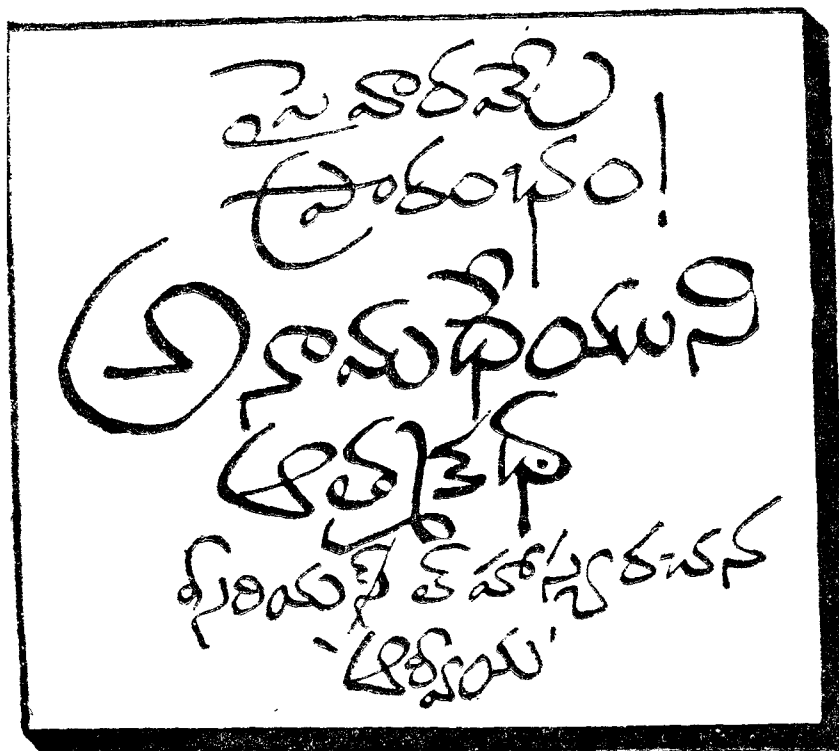 పై వారమే
ప్రారంభం!
అనామధేయుని
ఆత్మకథ
సీరియస్ హాస్యరచన
'ఆర్వీయం'